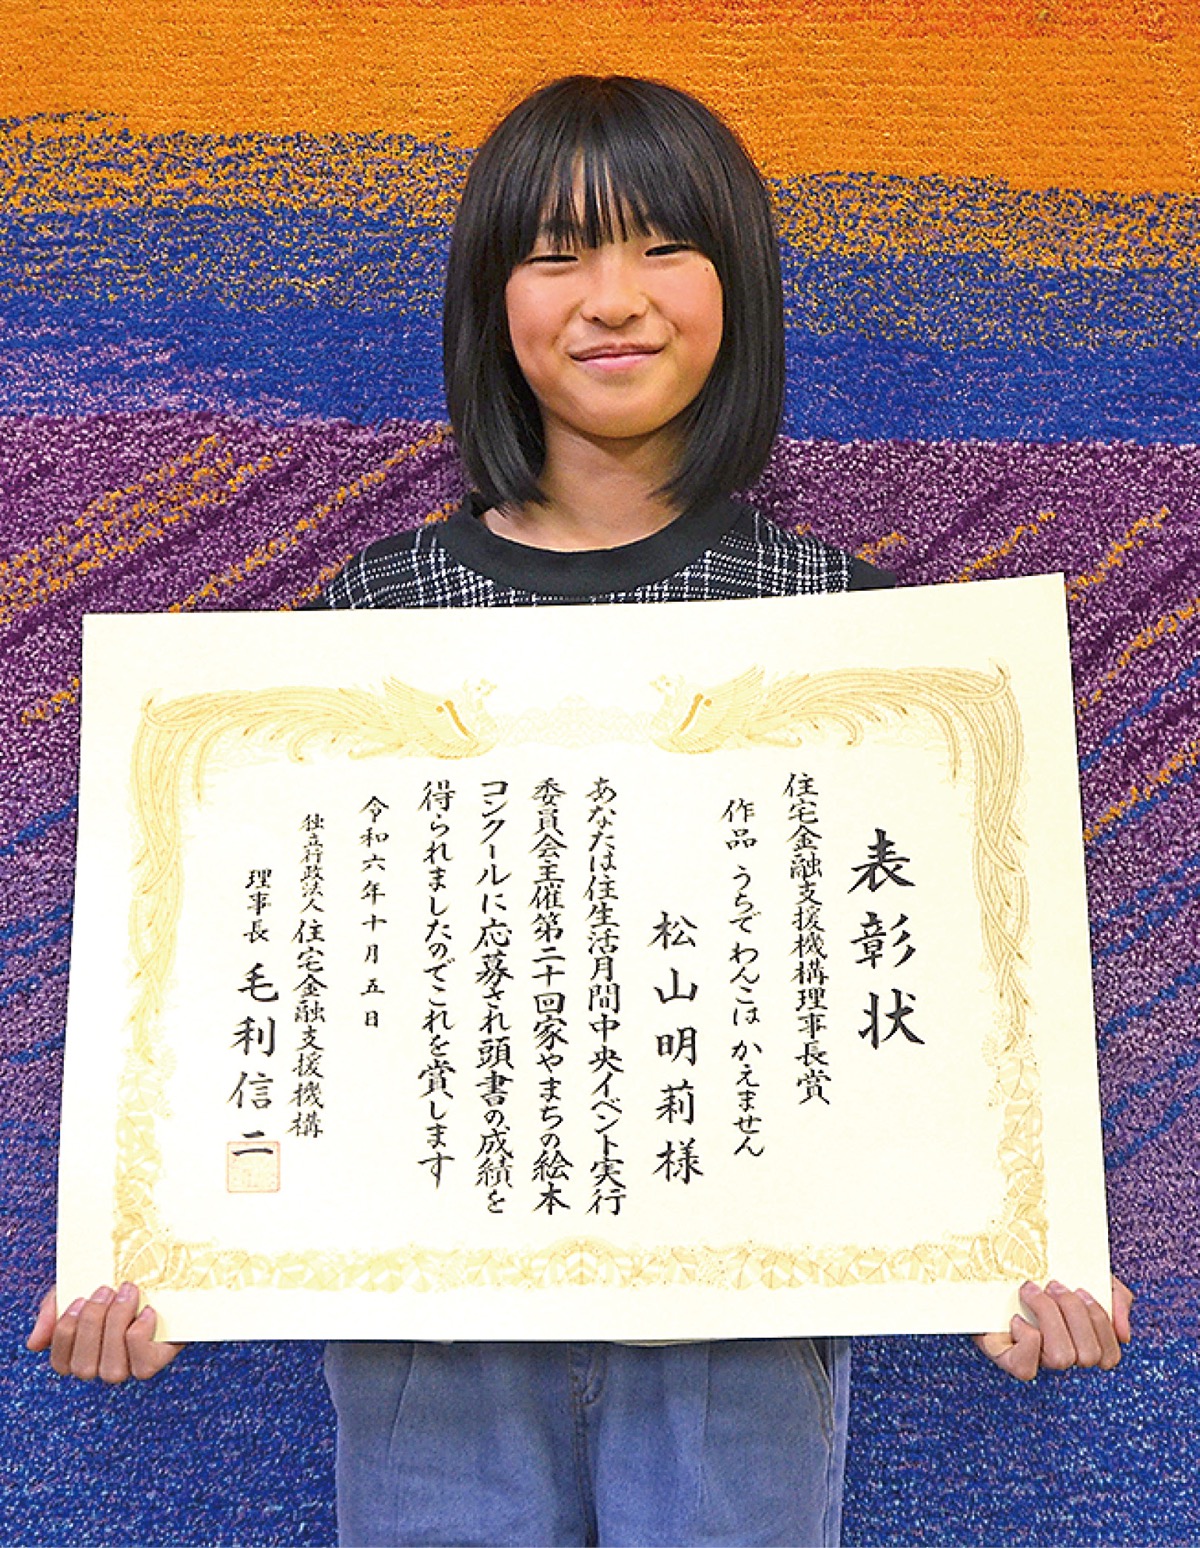 表彰状
住宅金融支援機構理事長賞
作品 うちでわんこは かえません
松山明莉様
あなたは住生活月間中央イベント実行
委員会主催第二十回家やまちの絵本
コンクールに応募され頭書の成績を
得られましたのでこれを賞します
令和六年十月五日
独立行政法人 住宅金融支援機構
理事長 毛利信二